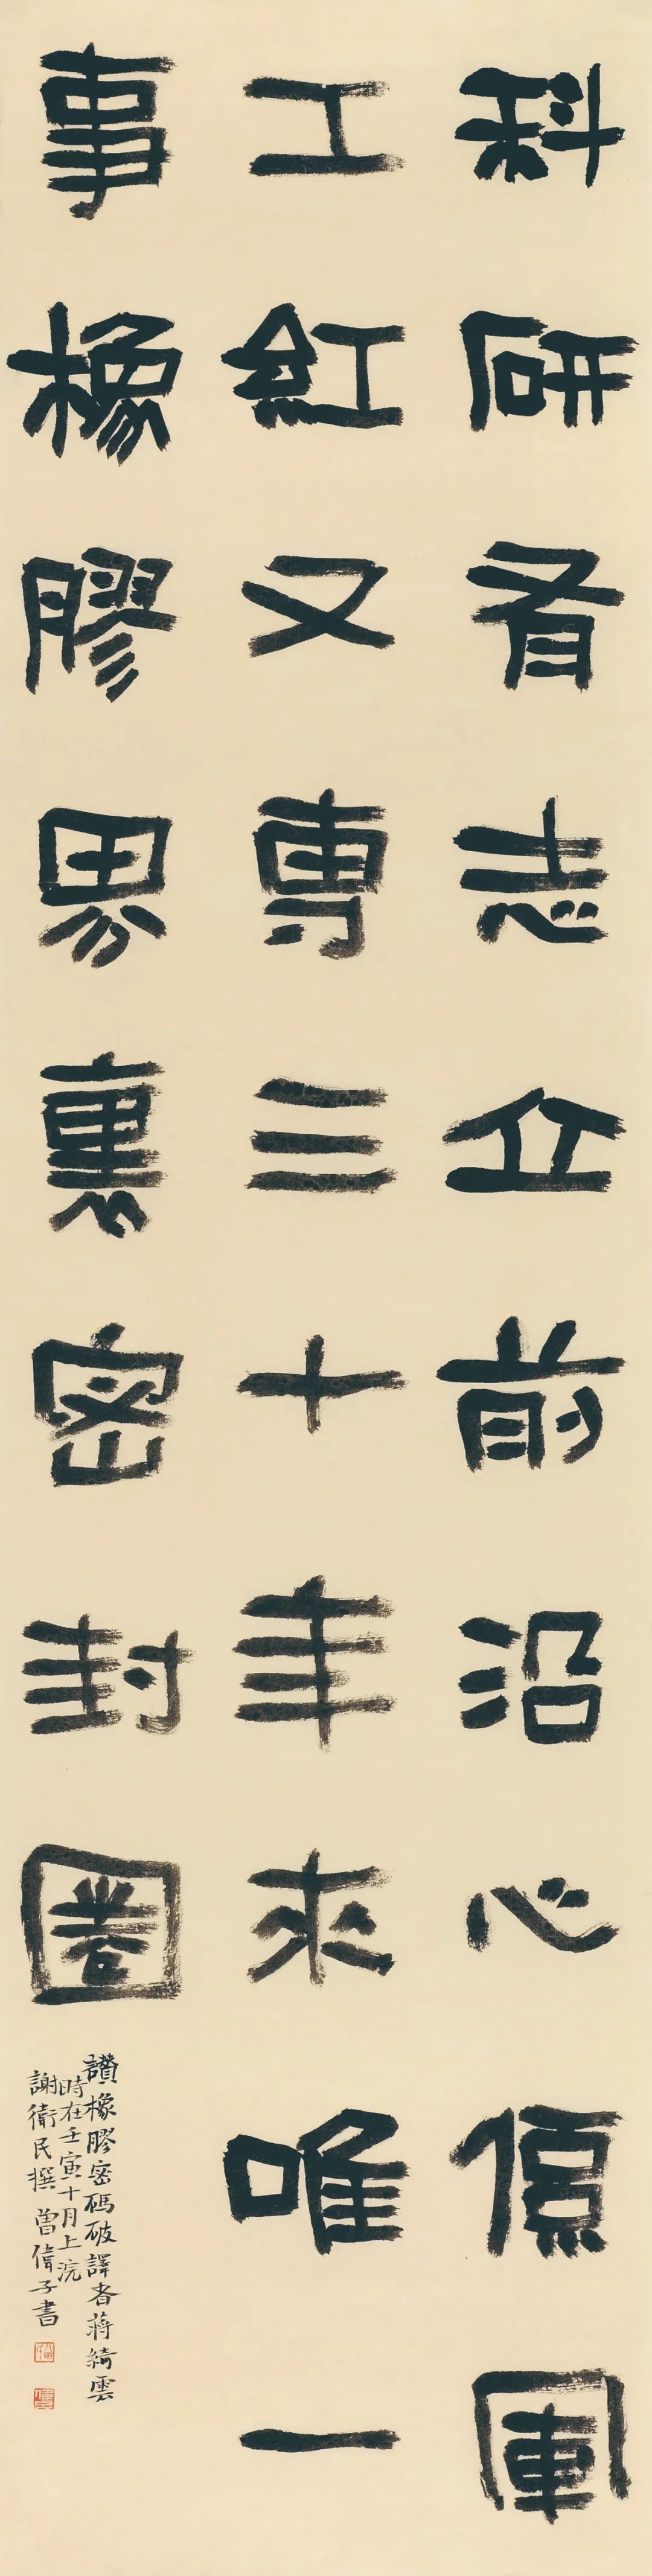 科研有志立前沿心係軍
工紅又專三十年來唯一
事橡膠界裏密封圈
讚橡膠密碼破譯者蔣綺雲
時在壬寅十月上浣
謝衛民撰 曾偉子書